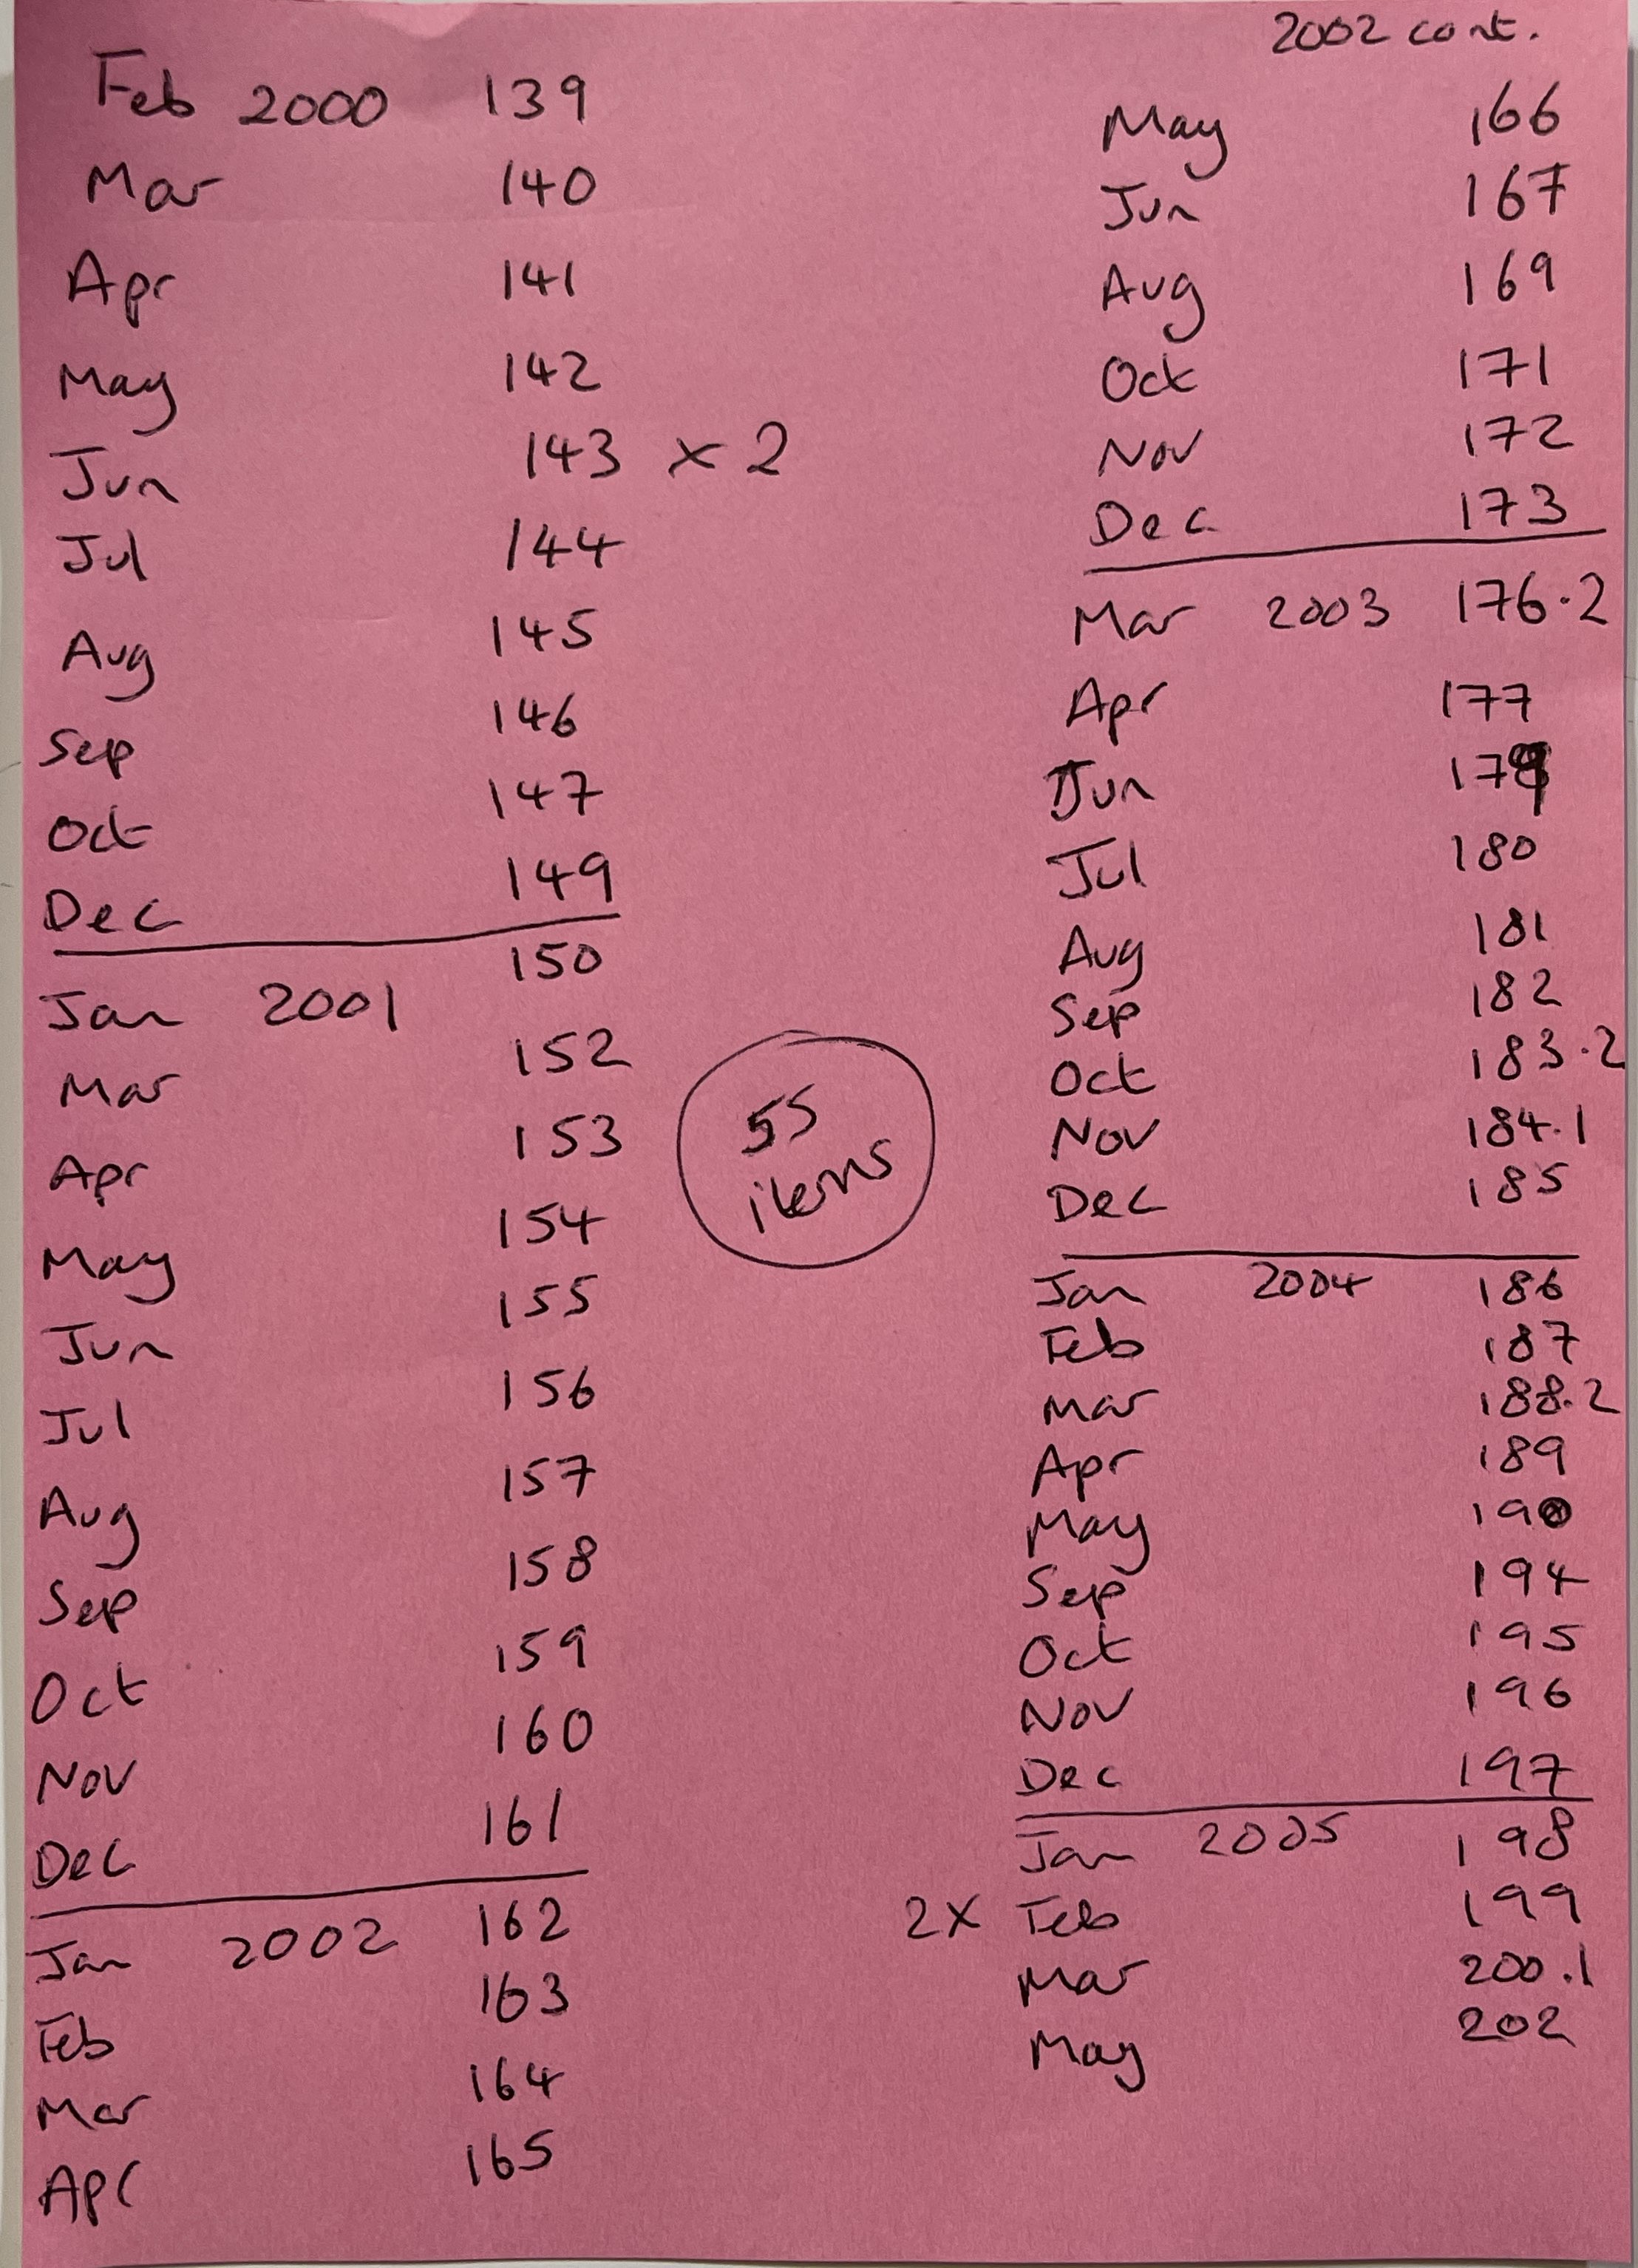 Feb 2000 139
Mar 140
Apr 141
May 142
Jun 143 x 2
Jul 144
Aug 145
Sep 146
Oct 147
Dec 149
Jan 2001 150
Mar 152
Apr 153
May 154
Jun 155
Jul 156
Aug 157
Sep 158
Oct 159
Nov 160
Dec 161
Jan 2002 162
Feb 163
Mar 164
Apr 165
55
items
2002 cont.
May 166
Jun 167
Aug 169
Oct 171
Nov 172
Dec 173
Mar 2003 176.2
Apr 177
Jun 179
Jul 180
Aug 181
Sep 182
Oct 183.2
Nov 184.1
Dec 185
Jan 2004 186
Feb 187
Mar 188.2
Apr 189
May 190
Sep 194
Oct 195
Nov 196
Dec 197
Jan 2005 198
2x Feb 199
Mar 200.1
May 202